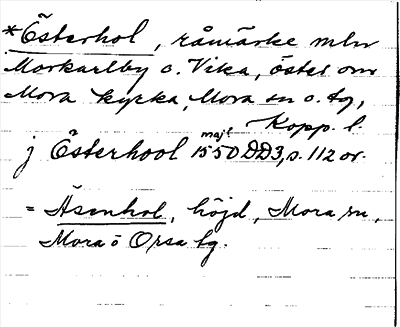 *Österhol, råmärke mlm
Morkarlby o. Vika, öster om
Mora kyrka, Mora sn o. tg,
Kopp. l.
j Österhool 15 maj! 1550 DD3, s. 112 or.
= Åsenhol, höjd, Mora sn,
Mora o Orsa tg.